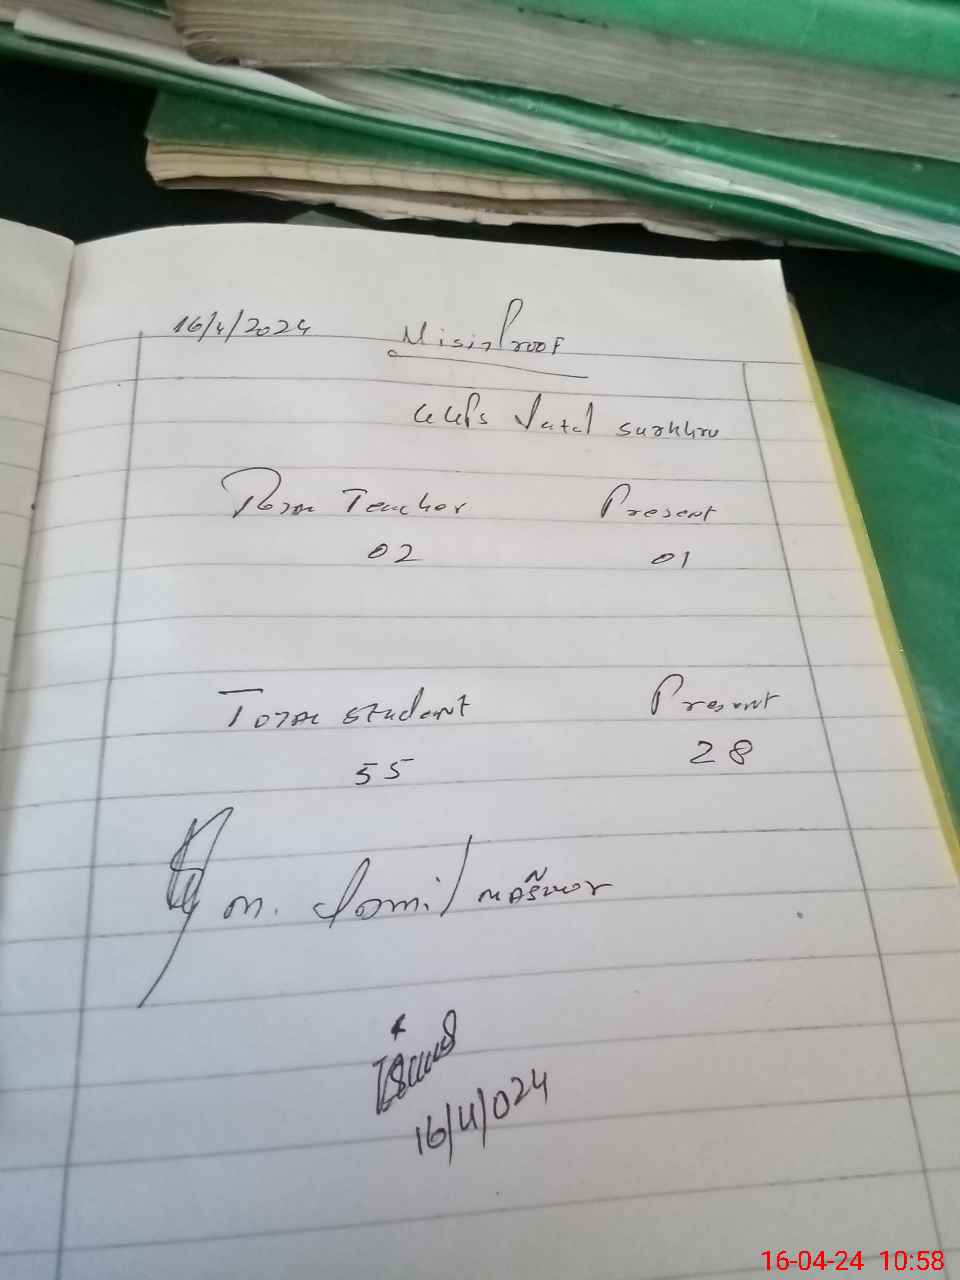 16/4/2024
Visit Proof
GGPS Patal Surkhru
Total Teacher Present
02 01
Total Student Present
55 28
m. Jamil
16/4/024
16-04-24 10:58